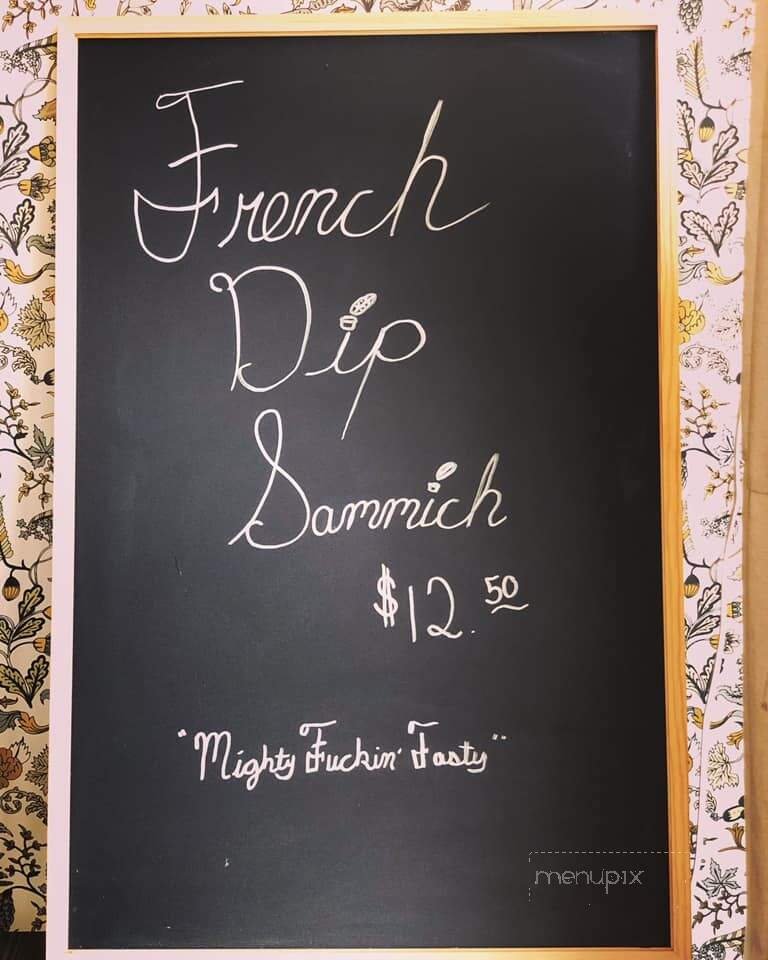 French
Dip
Sammich
$12.50
"Mighty Fuckin' Tasty"
menupix